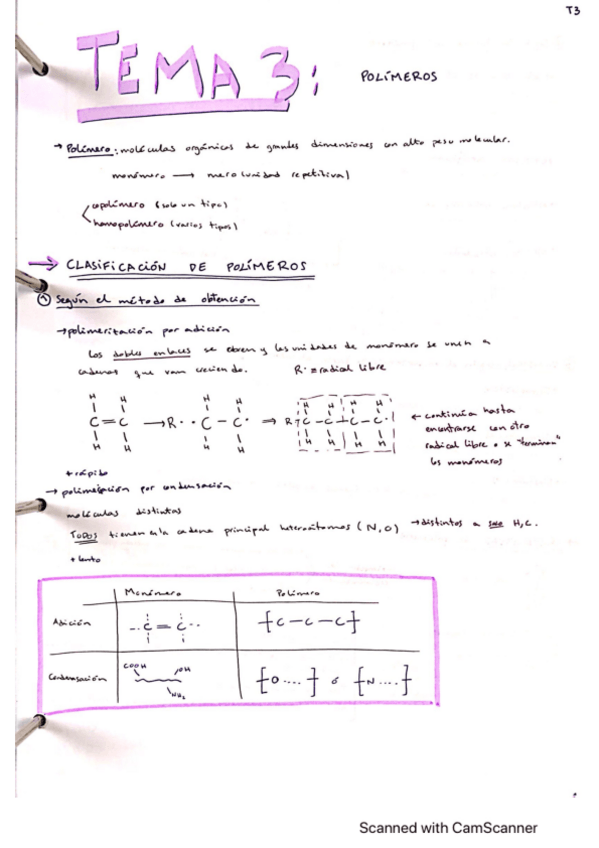 T3
TEMA 3: POLÍMEROS
→ Polímero: moléculas orgánicas de grandes dimensiones con alto peso molecular.
monómero → mero (unidad repetitiva)
copolímero (solo un tipo)
homopolímero (varios tipos)
→ CLASIFICACIÓN DE POLÍMEROS
① Según el método de obtención
→ polimeritación por adición
Los dobles enlaces se abren y las unidades de monómero se unen a
cadenas que van creciendo. R· ≡ radical libre
H H H H H H H H
C = C → R· · C – C· ⇒ R – C – C – C – C·
H H H H H H H H
← continúa hasta
encontrarse con otro
radical libre o se "terminan"
los monómeros
+ rápido
→ polimerización por condensación
moléculas distintas
TODOS tienen en la cadena principal heteroátomos (N, O) → distintos a H, C.
+ lento
Monómero Polímero
Adición ··C = C·· [C – C – C]
Condensación COOH OH NH₂ [O....] ó [N....]
Scanned with CamScanner